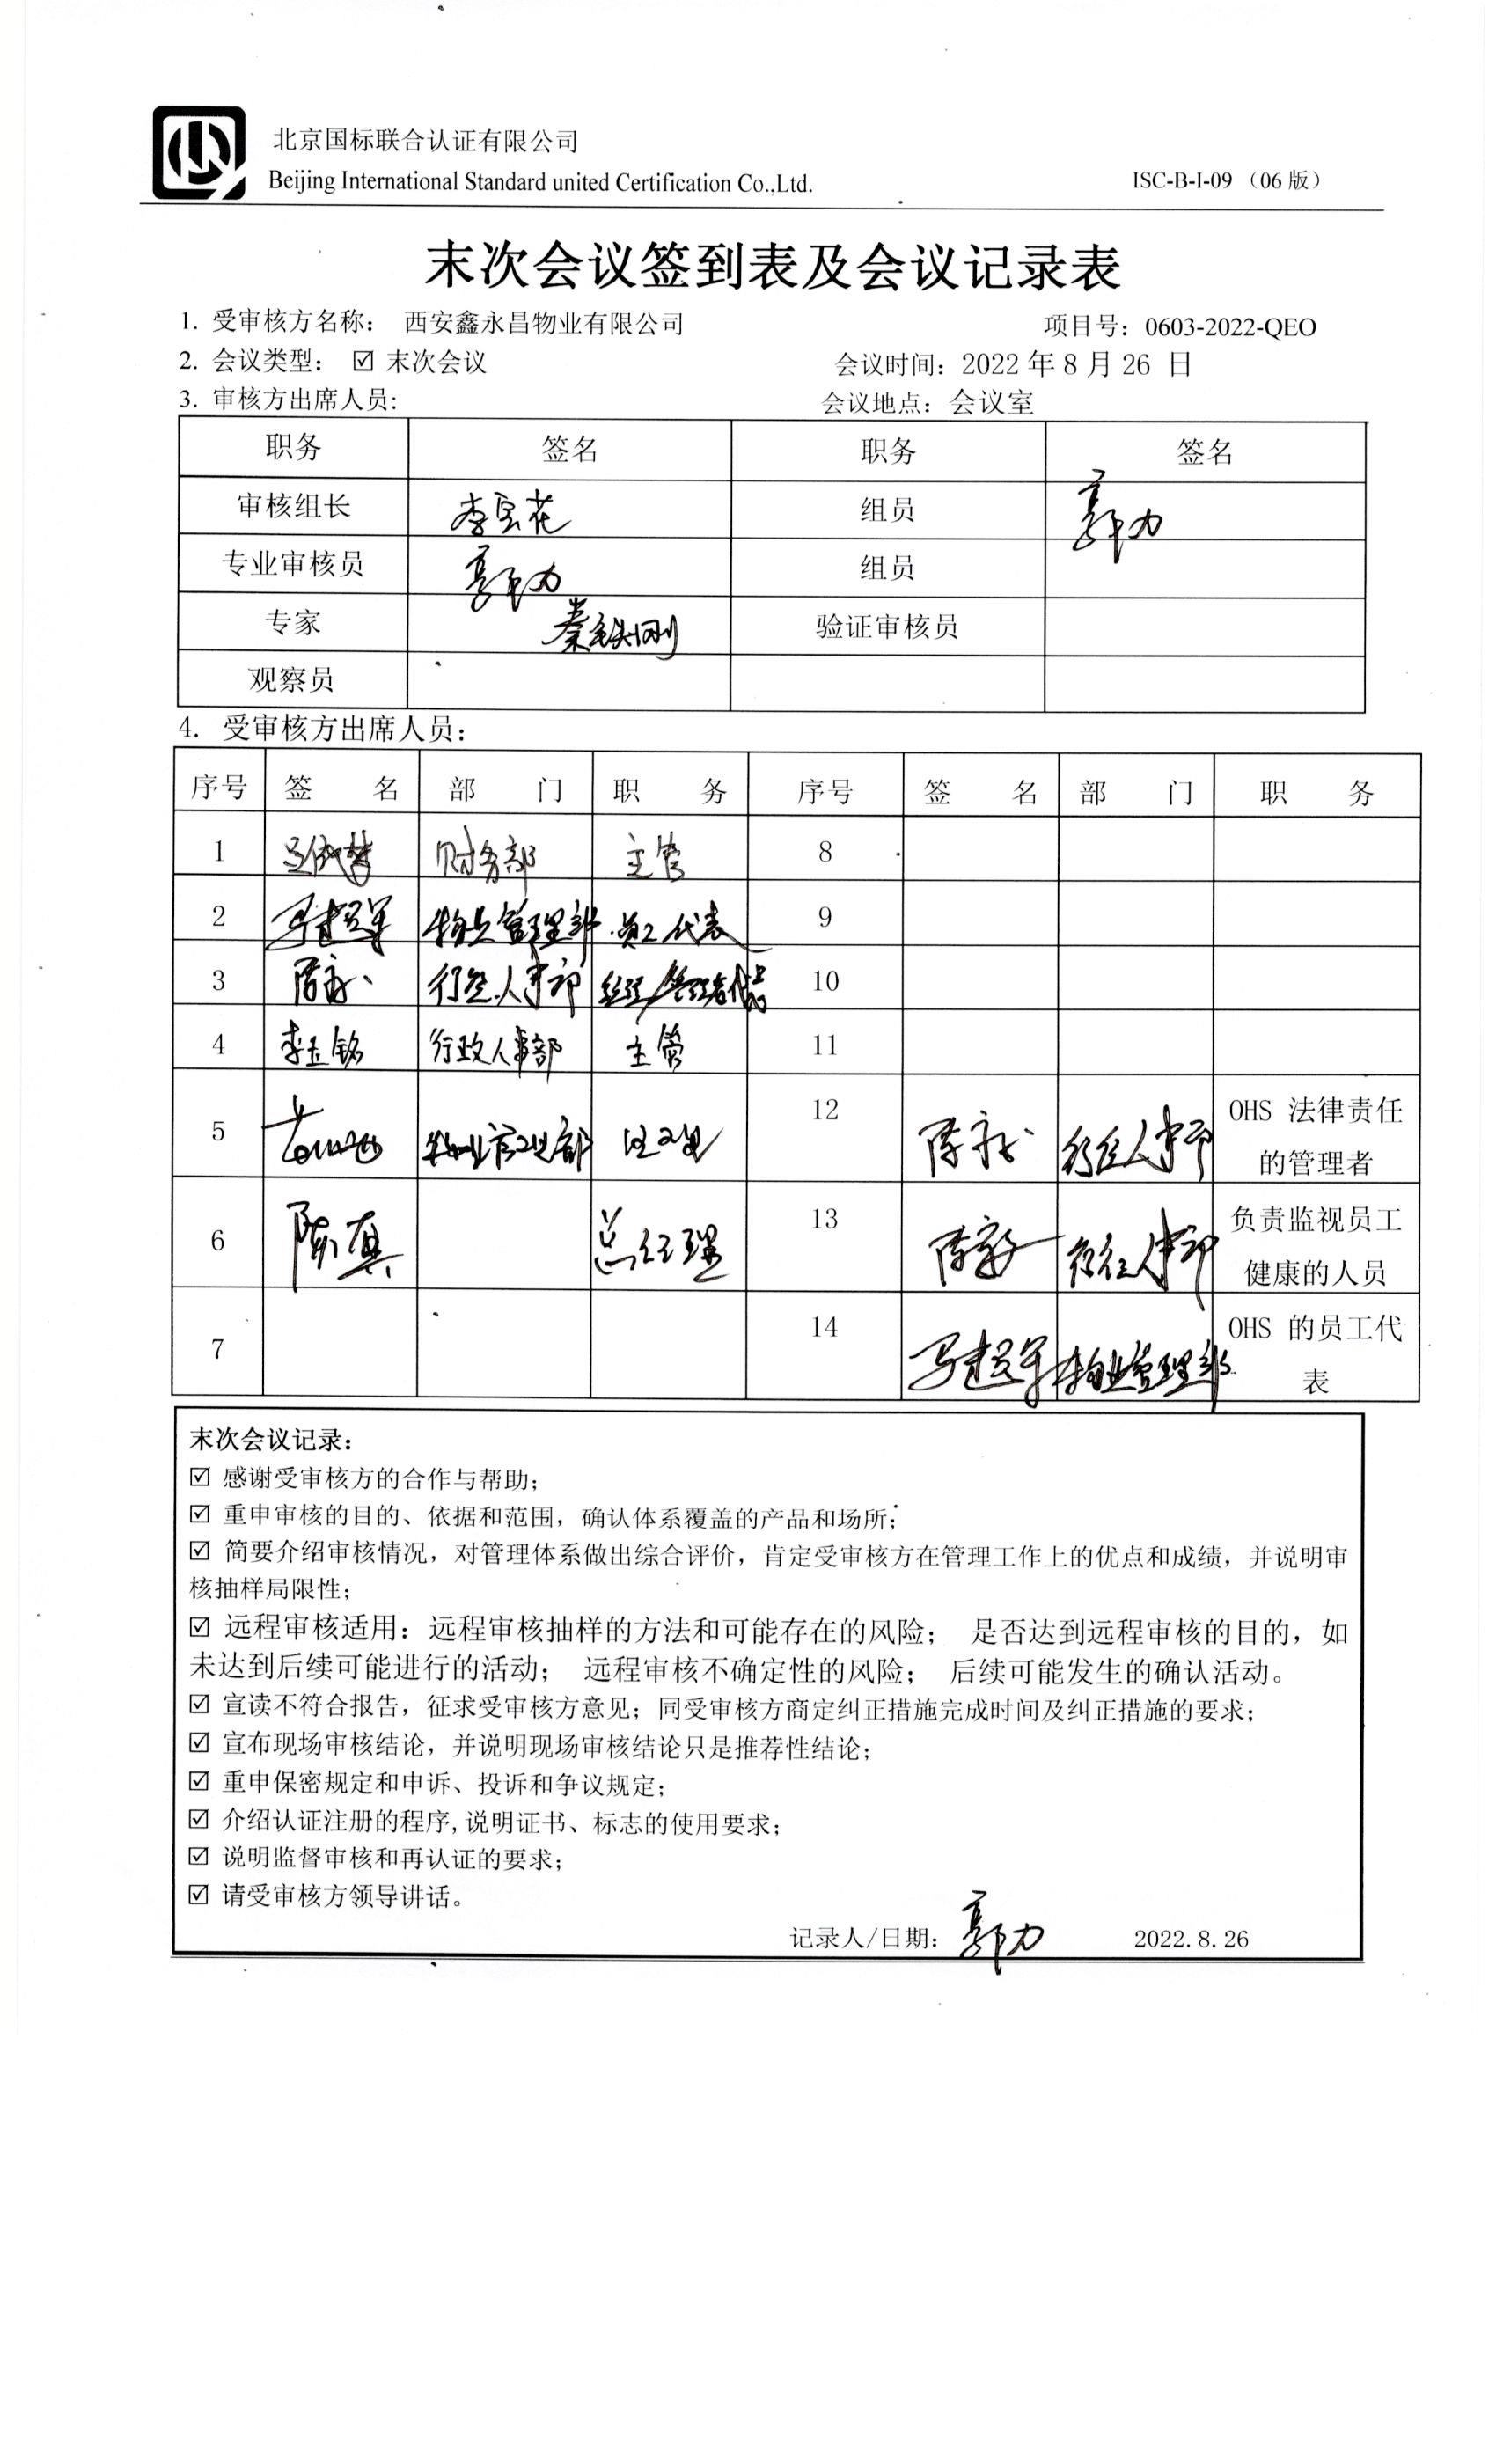 北京国标联合认证有限公司
Beijing International Standard united Certification Co.,Ltd. ISC-B-I-09 （06 版）
末次会议签到表及会议记录表
1. 受审核方名称： 西安鑫永昌物业有限公司 项目号：0603-2022-QEO
2. 会议类型： ☑ 末次会议 会议时间：2022 年 8 月 26 日
3. 审核方出席人员: 会议地点：会议室
职务 签名 职务 签名
审核组长 李宝花 组员 郭力
专业审核员 郭力 组员
专家 秦铁刚 验证审核员
观察员
4. 受审核方出席人员:
序号 签 名 部 门 职 务 序号 签 名 部 门 职 务
1 财务部 主管 8
2 马建军 物业管理部 员工代表 9
3 行政人事部 经理/管理者代表 10
4 李玉铭 行政人事部 主管 11
5 物业管理部 12 行政人事部 OHS 法律责任
的管理者
6 陈真 总经理 13 行政人事部 负责监视员工
健康的人员
7 14 物业管理部 OHS 的员工代
表
末次会议记录:
☑ 感谢受审核方的合作与帮助;
☑ 重申审核的目的、依据和范围，确认体系覆盖的产品和场所;
☑ 简要介绍审核情况，对管理体系做出综合评价，肯定受审核方在管理工作上的优点和成绩，并说明审
核抽样局限性;
☑ 远程审核适用：远程审核抽样的方法和可能存在的风险； 是否达到远程审核的目的，如
未达到后续可能进行的活动； 远程审核不确定性的风险； 后续可能发生的确认活动。
☑ 宣读不符合报告，征求受审核方意见；同受审核方商定纠正措施完成时间及纠正措施的要求;
☑ 宣布现场审核结论，并说明现场审核结论只是推荐性结论;
☑ 重申保密规定和申诉、投诉和争议规定;
☑ 介绍认证注册的程序,说明证书、标志的使用要求;
☑ 说明监督审核和再认证的要求;
☑ 请受审核方领导讲话。
记录人/日期: 郭力 2022.8.26